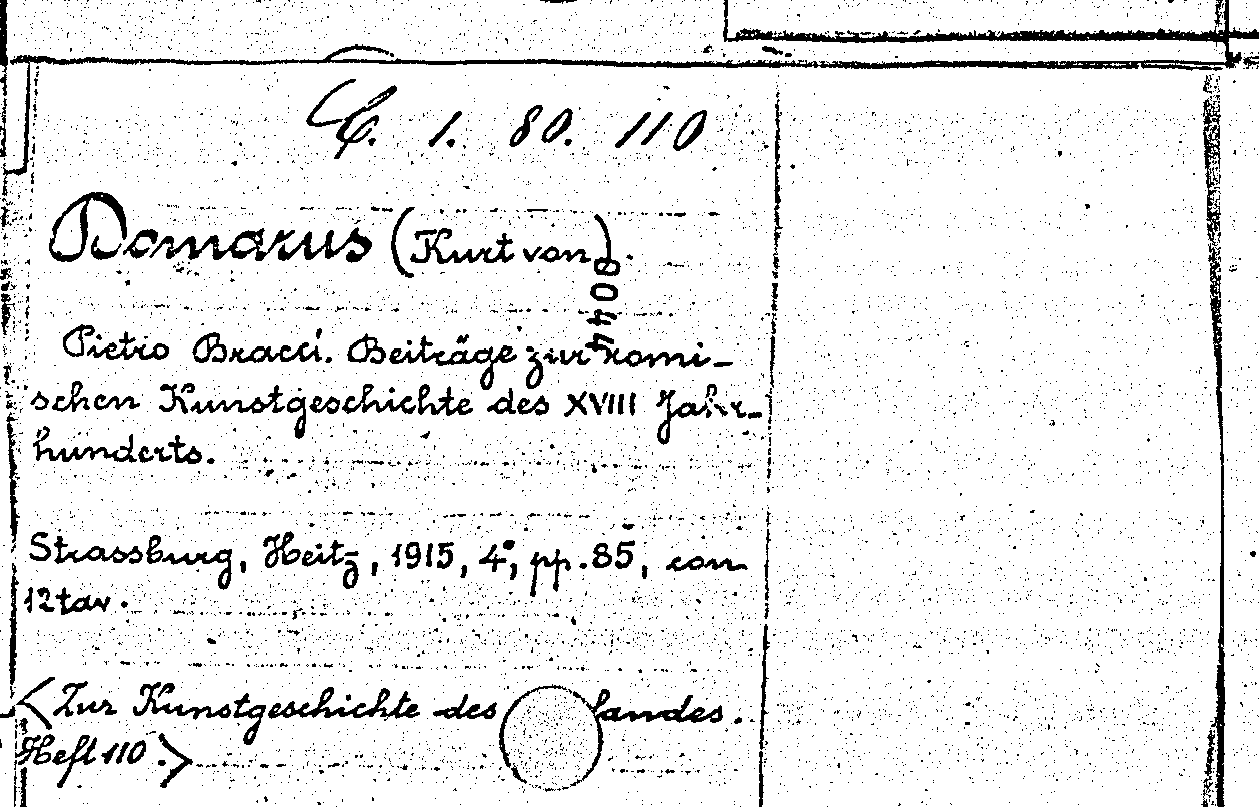 C. 1. 80. 110
Domarus (Kurt von).
8044
Pietro Bracci. Beiträge zur romi-
schen Kunstgeschichte des XVIII Jahr-
hunderts.
Strassburg, Heitz, 1915, 4°, pp. 85, con
12 tav.
<Zur Kunstgeschichte des landes.
Heft 110.>